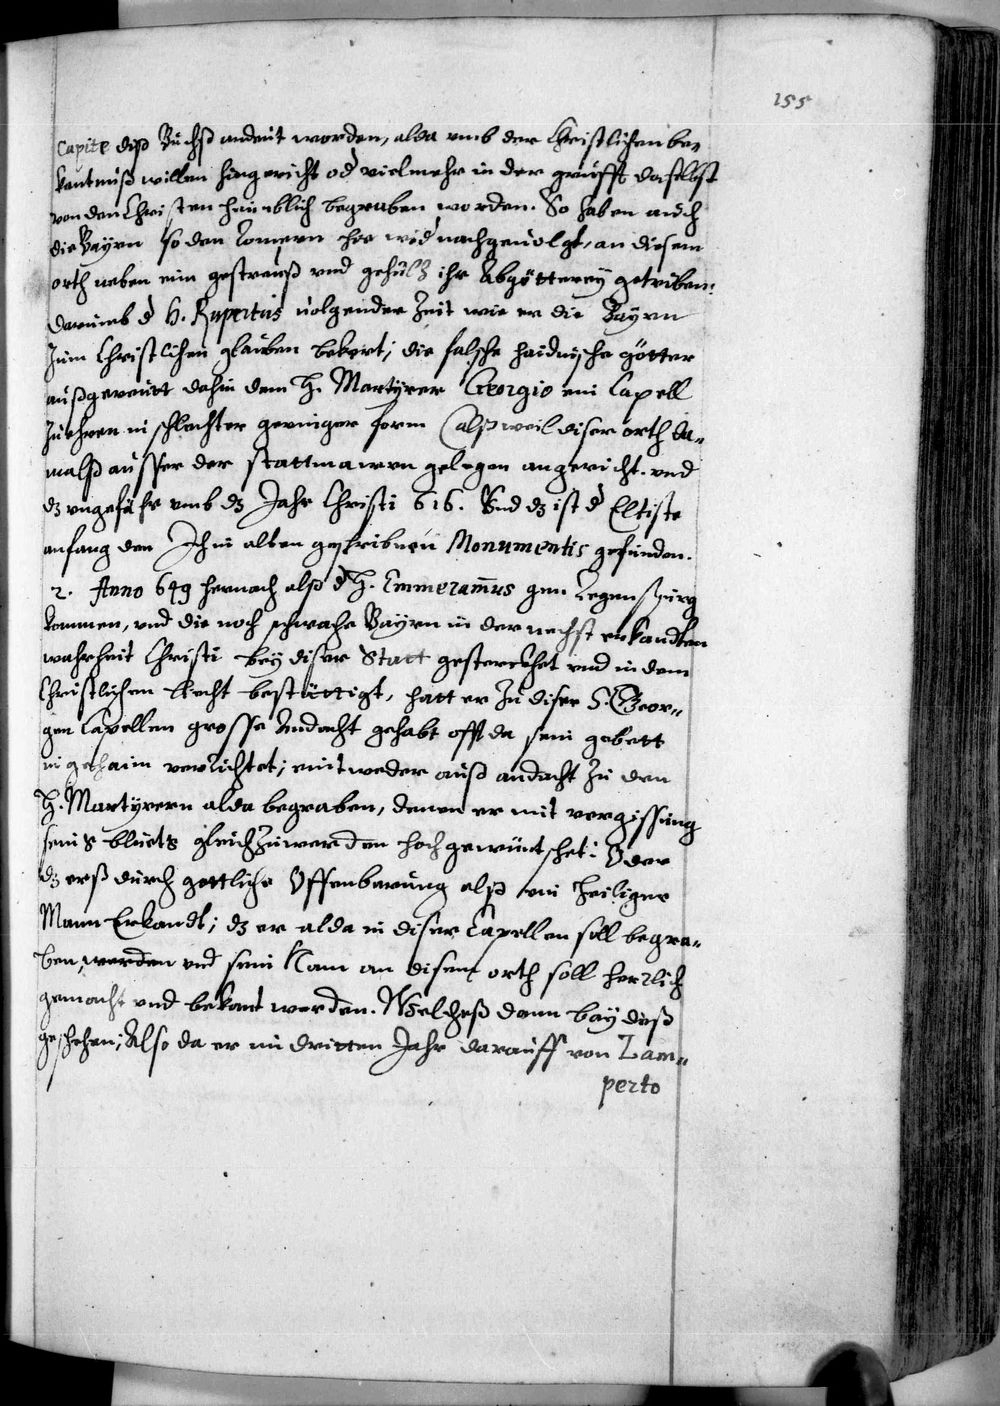 155
Capite diß Buchß andeüt worden, alda vmb der Christlichen be„
kantnuß willen hingericht od vielmehr in der grufft daselbst
von den Christen heimblich begraben worden. So haben auch
die Bayrn so den Römern hie wid nachgeuolgt, an diesem
orth neben eim gestreuß vnd gehültz ihr Abgötterey getriben:
Darumb d H. Rupertus volgender Zeit wie er die Bayrn
zum Christlichen glauben bekert, die falsche haidnische götter
außgereüt dahin dem H. Martyrer Georgio ein Capell
zu ehren in schlechter geringer form (alß weil diser orth da„
malß ausser der stattmauren gelegen angericht. vnd
dz vngefähr vmb dz Jahr Christi 616. Vnd dz ist d Eltiste
anfang den Ich in alten geschribnen Monumentis gefunden.
2. Anno 649 hernach alß d H. Emmeram̄us gen Regenspurg
kommen, vnd die noch schwache Bayrn in der nechst erkandten
wahrheit Christi bey diser Statt gesterckhet vnd in dem
Christlichen liecht bestättigt, hatt er zu diser S. Geor„
gen Capellen grosse Andacht gehabt offt da sein gebett
in gehaim verrichtet; eintweder auß andacht zu den
H. Martyrern alda begraben, denen er mit vergissung
seins bluets gleich zuwerden hoch gewüntschet: Oder
dz erß durch gottliche Offenbarung alß ein heiliger
Mann Erkandt; dz er alda in diser Capellen soll begra„
ben werden vnd sein Nam an disem orth soll herrlich
gemacht vnd bekant werden. Welcheß dann baydeß
geschehen; Also da er im dritten Jahr darauff von Lam„
perto